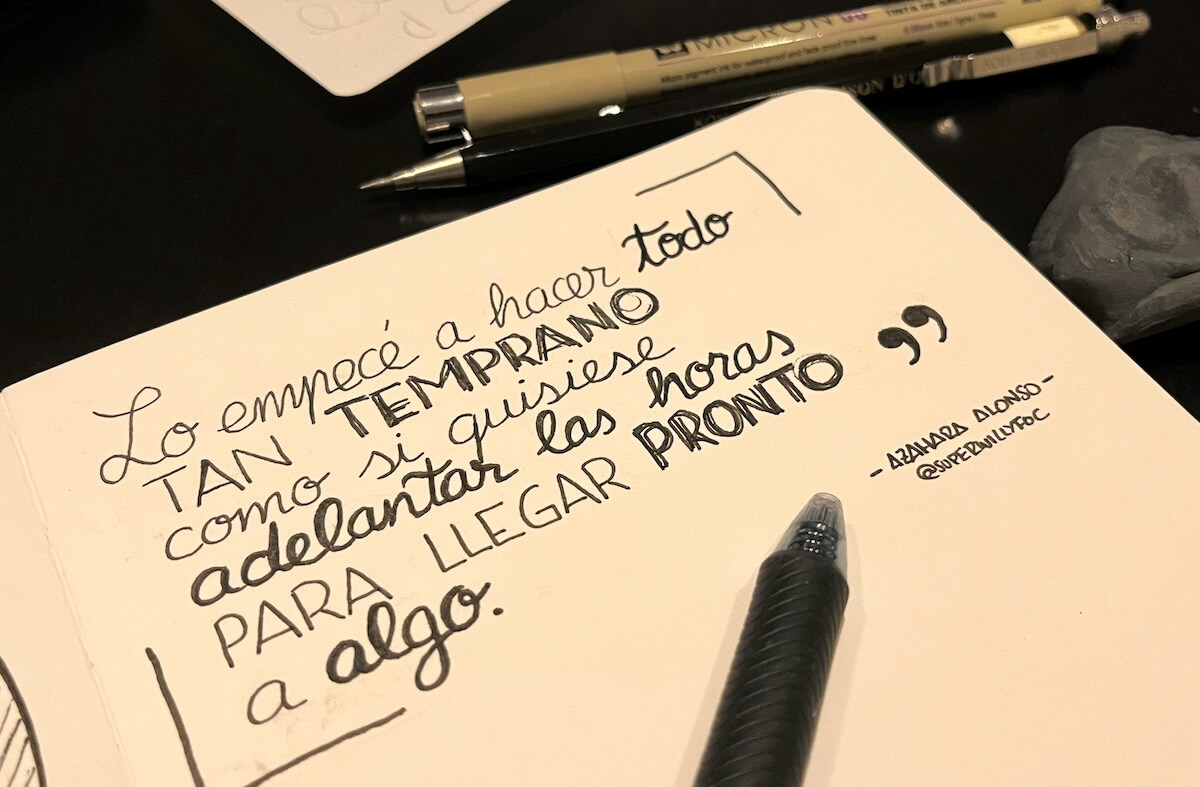 MICRON
Lo empecé a hacer todo
TAN TEMPRANO
como si quisiese
adelantar las horas
PARA LLEGAR PRONTO
a algo.
”
- AZAHARA ALONSO -
@SUPERWILLYFOC